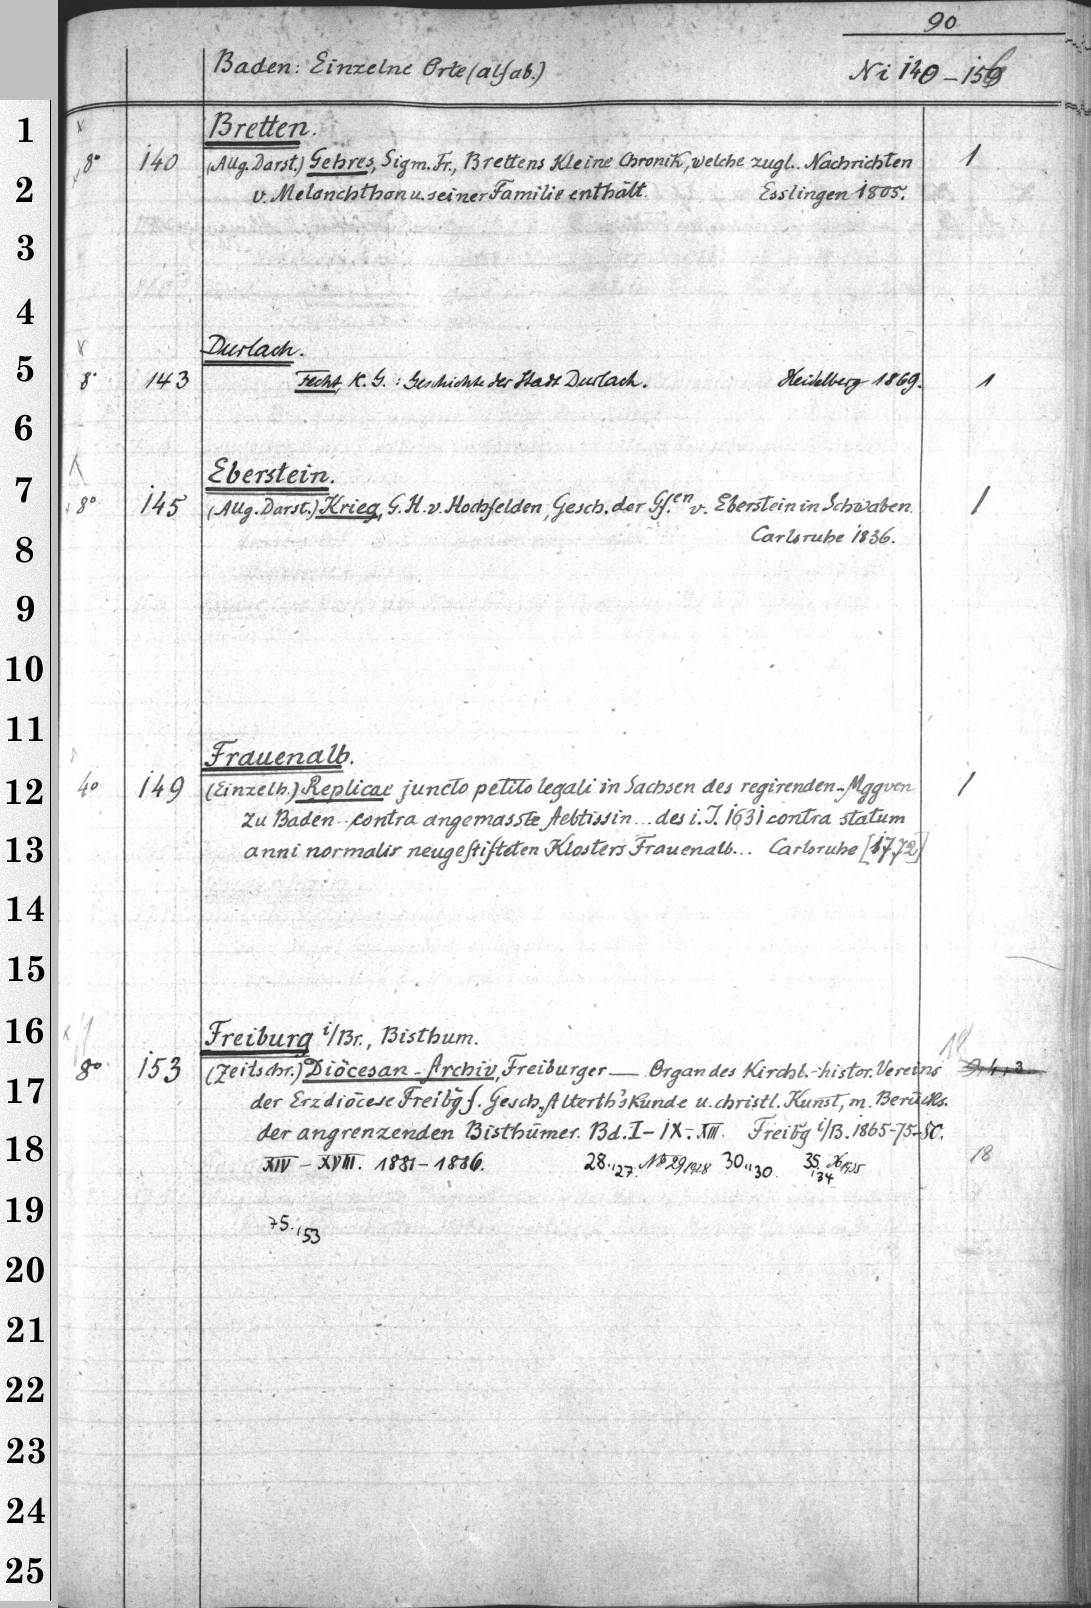 90
Baden: Einzelne Orte (alfab.) Ni 140 – 156
Bretten.
8° 140 (Allg. Darst.) Gehres, Sigm. Fr., Brettens Kleine Chronik, welche zugl. Nachrichten 1
v. Melanchthon u. seiner Familie enthält. Esslingen 1805.
Durlach.
8° 143 Fecht, K. G.: Geschichte der Stadt Durlach. Heidelberg 1869. 1
Eberstein.
8° 145 (Allg. Darst.) Krieg, G. H. v. Hochfelden, Gesch. der Gf.en v. Eberstein in Schwaben. 1
Carlsruhe 1836.
Frauenalb.
4° 149 (Einzelh.) Replicae juncto petito legali in Sachsen des regirenden Mggven 1
zu Baden.. contra angemasste Aebtissin... des i. J. 1631 contra statum
anni normalis neugestifteten Klosters Frauenalb... Carlsruhe [1772]
Freiburg i/Br., Bisthum. 18
8° 153 (Zeitschr.) Diöcesan-Archiv, Freiburger — Organ des Kirchl.-histor. Vereins 9, 4, 3
der Erzdiöcese Freibg f. Gesch., Alterth'skunde u. christl. Kunst, m. Berücks.
der angrenzenden Bisthümer. Bd. I–IX.–XIII. Freibg i/B. 1865–75–80.
XIV – XVIII. 1881–1886. 28.,27. NF 29 1928 30,,30. 35,34 18
75.,53
1
2
3
4
5
6
7
8
9
10
11
12
13
14
15
16
17
18
19
20
21
22
23
24
25